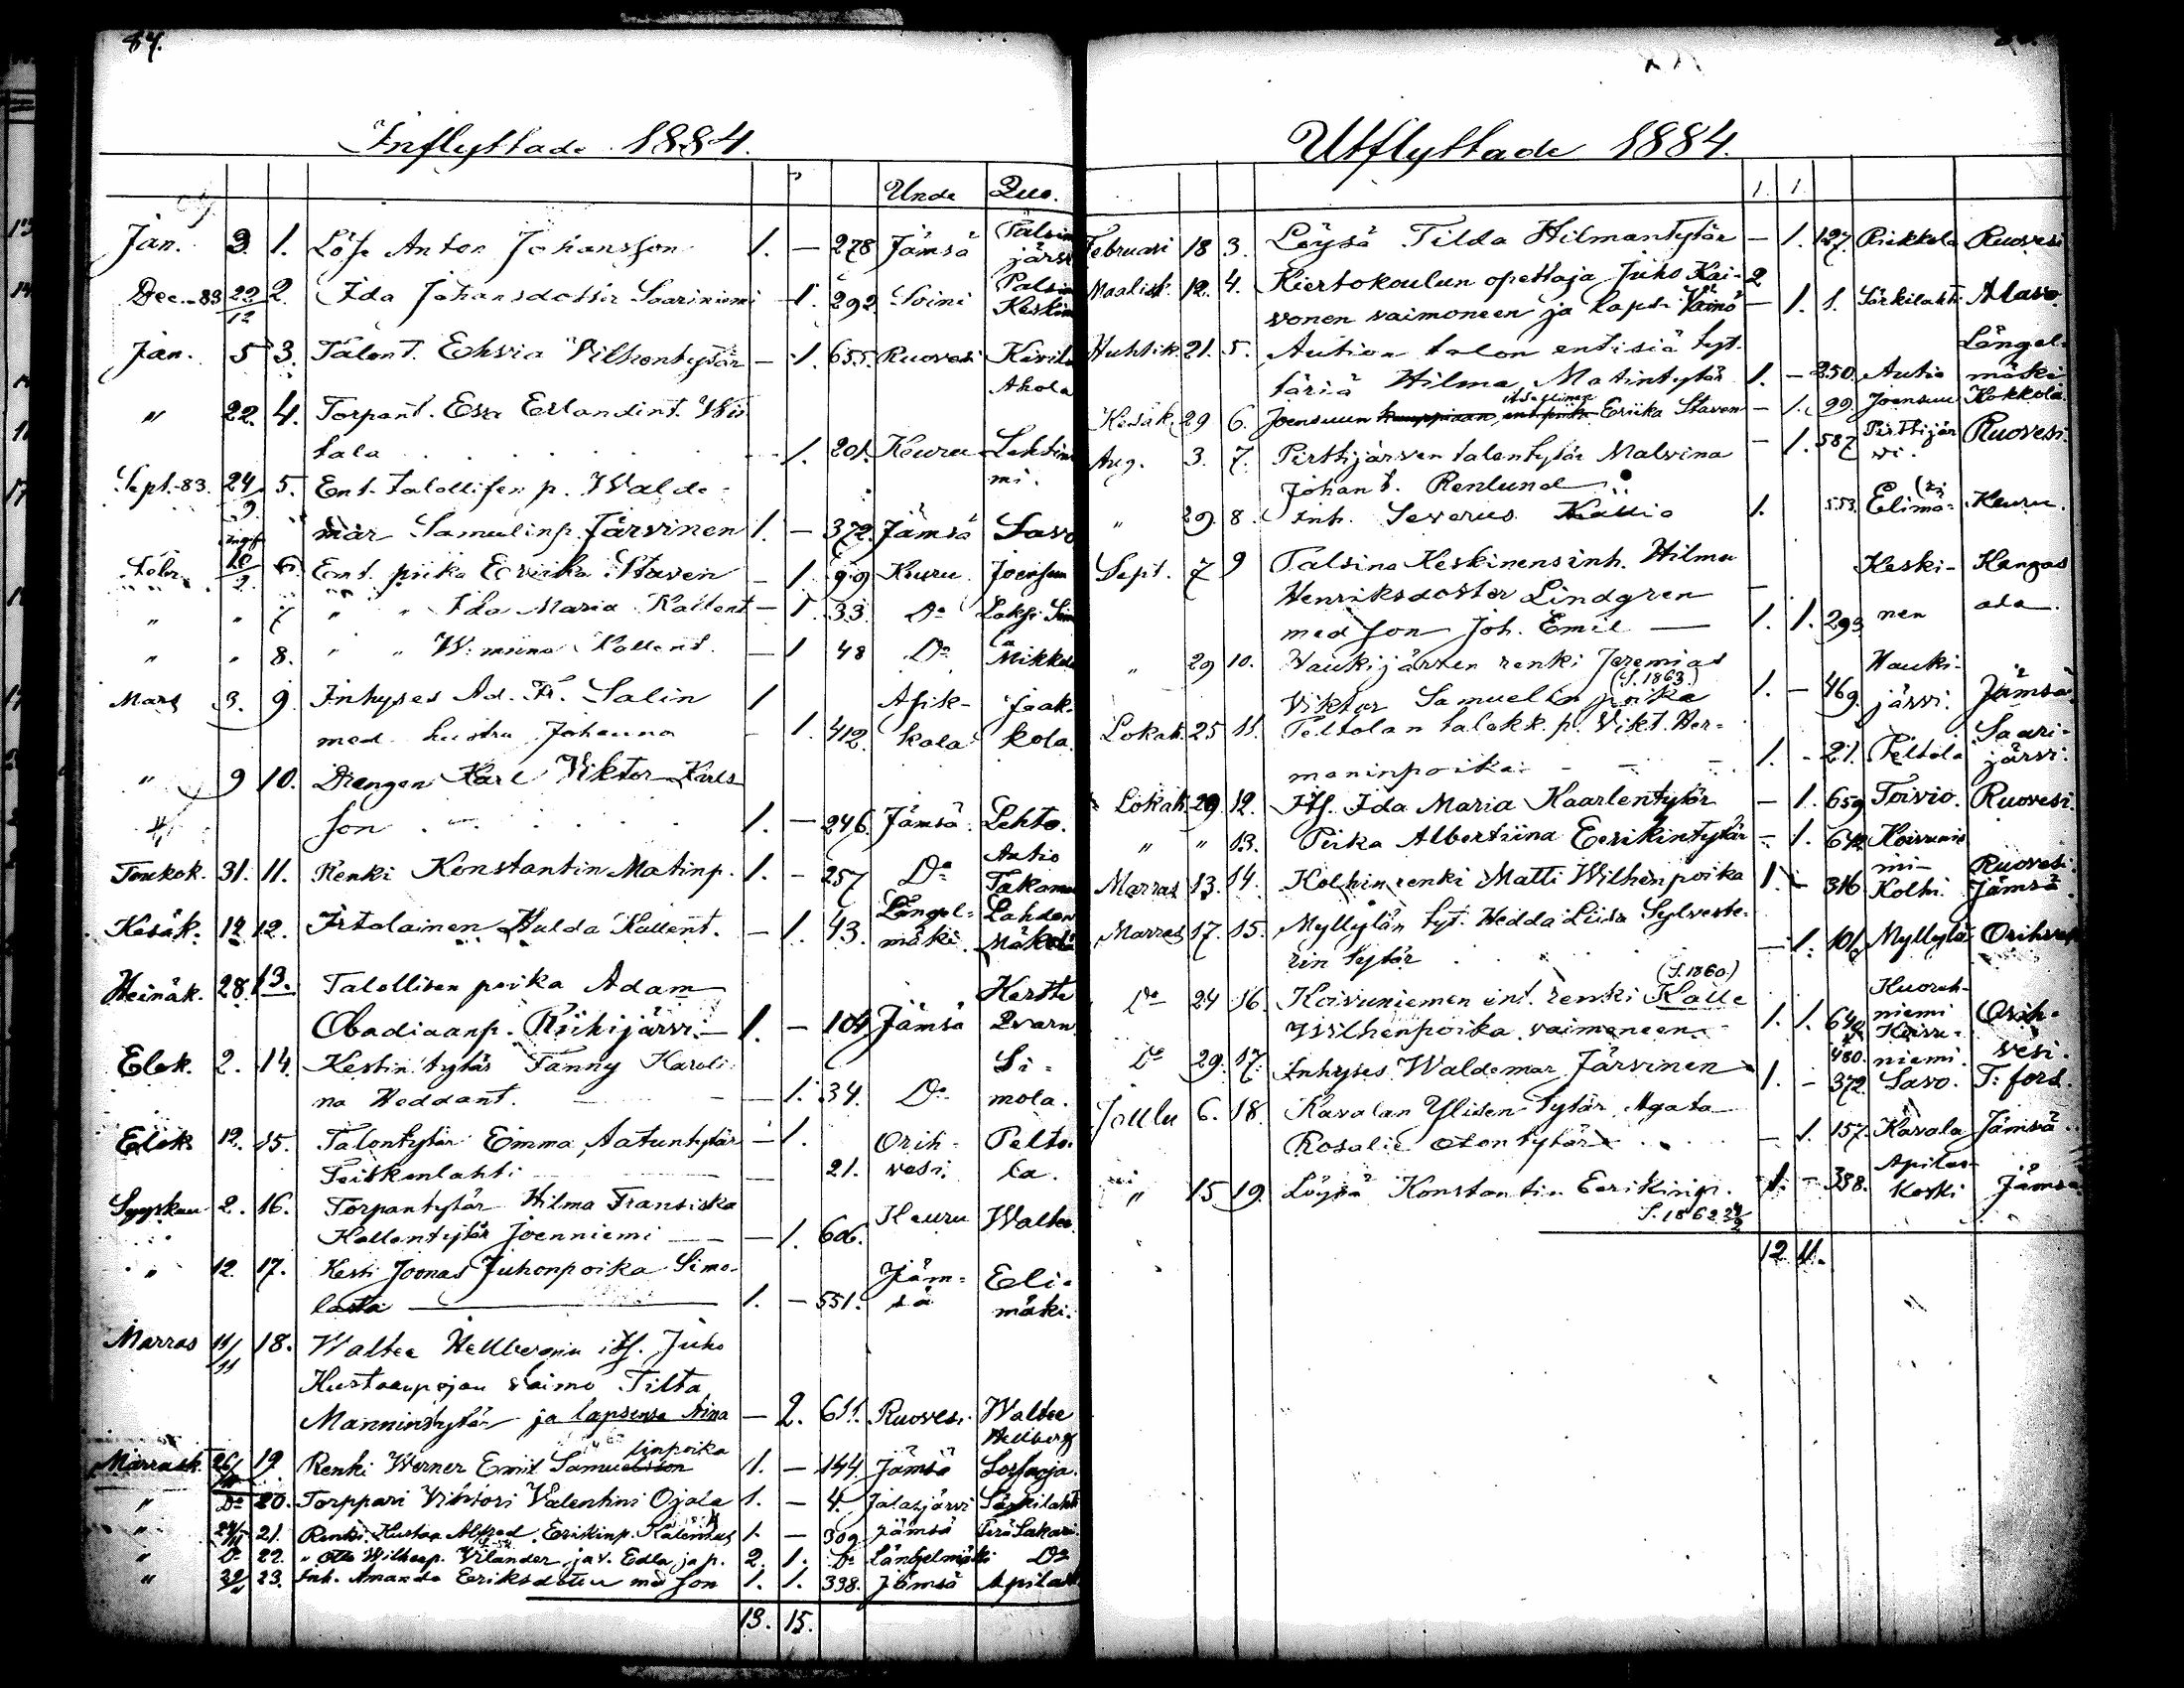 84.
Inflyttade 1884.
Unde Quo.
Jan. 3. 1. Löfs Anton Johansson 1. — 278 Jämsä Talvin
järvi
Dec.-83 22/12 2. Ida Johansdotter Saariniemi — 1. 292 Soini
Keskin
Jan. 5 3. Talont. Ehvia Vilhontytär — 1. 655. Ruovesi Kivila
Ahola
" 22. 4. Torpant. Eva Erlandint. Wii
tala — 1. 201. Keuru Lehtini
mi.
Sept.-83. 24/9 5. Ent. talollisen p. Walde-
mar Samulinp. Järvinen 1. — 372. Jämsä Savo
Febr. 10/2 6. Ent. piika Eerika Staven — 1. 99 Keuru Joensuu
" " 7 " " Ida Maria Kallent. — 1. 33. Do
" " 8. " " W:miina Kallent. — 1 48 Do Mikkola
Mars 3. 9. Inhyses Ad. Fr. Salin 1
med hustru Johanna — 1. 412. kola kola.
" 9 10. Drengen Karl Viktor Karls-
son 1. — 246. Jämsä Lehto.
Autio
Toukok. 31. 11. Renki Konstantin Matinp. 1. — 257 Do Takamaa
Längel- Lahden
Kesäk. 12 12. Irtolainen Hulda Kallent. — 1. 43. mäki. Mäkelä
Heinäk. 28. 13. Talollisen poika Adam Kertte
Obadiaanp. Riihijärvi — 1. — 104 Jämsä Qvarn
Elok. 2. 14. Kestin tytär Fanny Karoli- Si-
na Heddant. — 1. 34. Do mola.
Elok. 12. 15. Talontytär Emma Aatuntytär — 1. Orih- Pelto-
Teiskonlahti 21. vesi. la.
Syyskuu 2. 16. Torpantytär Hilma Fransiska
Kallentytär Joenniemi — 1. 606. Keuru Waltee
" 12. 17. Kesti Joonas Juhonpoika Simo- Jäm- Eli-
lasta 1. — 551. sä mäki.
Marras 11/11 18. Waltee Hellbergin its. Juho
Kustaanpojan vaimo Tilta
Mannintytär ja lapsensa Aina — 2. 611. Ruovesi Waltee
Hellberg
linpoika
Marrask. 19 Renki Werner Emil Samuelsson 1. — 144. Jämsä
" Do 20. Torppari Vihtori Valentini Ojala 1. — 4. Jalasjärvi Särkilahti
" 24/11 21. Renki Kustaa Alfred Eerikinp. Kalenius 1. — 309 Jämsä
" Do 22. " Otto Wilhenp. Vilander ja v. Edla ja p. 2. 1. Do Längelmäki Do
" 23. Inh. Amanda Eriksdotter med son 1. 1. 398. Jämsä
13. 15.
Utflyttade 1884.
1. 1.
Februari 18 3. Löysä Tilda Hilmantytär — 1. 127 Riekkola Ruovesi
Maalisk. 12. 4. Kiertokoulun opettaja Juho Kai- 2
vonen vaimoneen ja lapsi Väinö — 1. 1. Särkilahti Alavo.
Huhtik. 21. 5. Aution talon entisiä tyt- Längel-
täriä Hilma Matintytär 1. — 250. Autio mäki
Kesäk. 29 6. Joensuun Eriika Staven — 1. 99 Joensuu Kokkola
Aug. 3. 7. Perttijärven talontytär Malvina — 1. 587 Perttijär Ruovesi.
vi.
Johant. Renlund
" 29. 8. Inh. Severus Kallio 1. 553. Elimä- Keuru.
Sept. 7 9 Talvina Keskinens inh. Hilma Keski- Kangas
Henriksdotter Lindgren —
med son Joh. Emil — 1. 1. 293 nen ala.
" 29 10. Haukijärven renki Jeremias Hauki-
(S. 1863.)
Viktor Samuelin poika 1. — 469. järvi. Jämsä
Lokak. 25 11. Peltolan talokk. p. Vikt. Her- Saari-
maninpoika 1. — 21. Peltola järvi.
Lokak. 29. 12. Its. Ida Maria Kaarlentytär — 1. 659 Toivio. Ruovesi.
" " 13. Piika Albertiina Eerikintytär — 1. 642 Koivunie
mi- Ruovesi.
Marras 13. 14. Kolhin renki Matti Wilhenpoika 1. — 316 Kolhi. Jämsä.
Marras 17. 15. Myllylän tyt. Hedda Liisa Sylveste-
rin tytär — 1. 101 Myllylä Orihvesi
(S. 1860.)
Do 24 16. Koivuniemen ent. renki Kalle
Wilhenpoika vaimoneen 1. 1. 642 niemi Orih-
Koivu-
480. niemi. vesi.
Do 29. 17. Inhyses Waldemar Järvinen 1. — 372. Savo. T:fors.
Joulu 6. 18. Kavalan Ylisen tytär Agata
Rosalie Otontytär — 1. 157. Kavala Jämsä.
" 15 19. Löysä Konstantin Eerikinp. 1. — 398. Apilas-
keski Jämsä
S. 1862
12. 11.